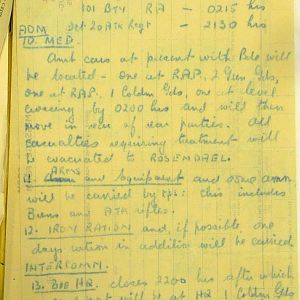 101 BTY RA - 0215 hrs
Det 20 ATK Regt - 2130 hrs
ADM
10. MED.
Amb cars at present with Bde will
be located - One at R.A.P. 2 Gren Gds,
one at R.A.P. 1 Coldm Gds, one at level
crossing by 0200 hrs and will then
move in rear of rear parties. All
casualties requiring treatment will
be evacuated to ROSENDAEL.
11. ARMS and Equipment and amn
will be carried by tps: this includes
Brens and ATK rifles.
12. IRON RATION and, if possible, one
days ration in addition will be carried
INTERCOMN.
13. BDE HQ. closes 2200 hrs after which
will be at HQ Coldm Gds